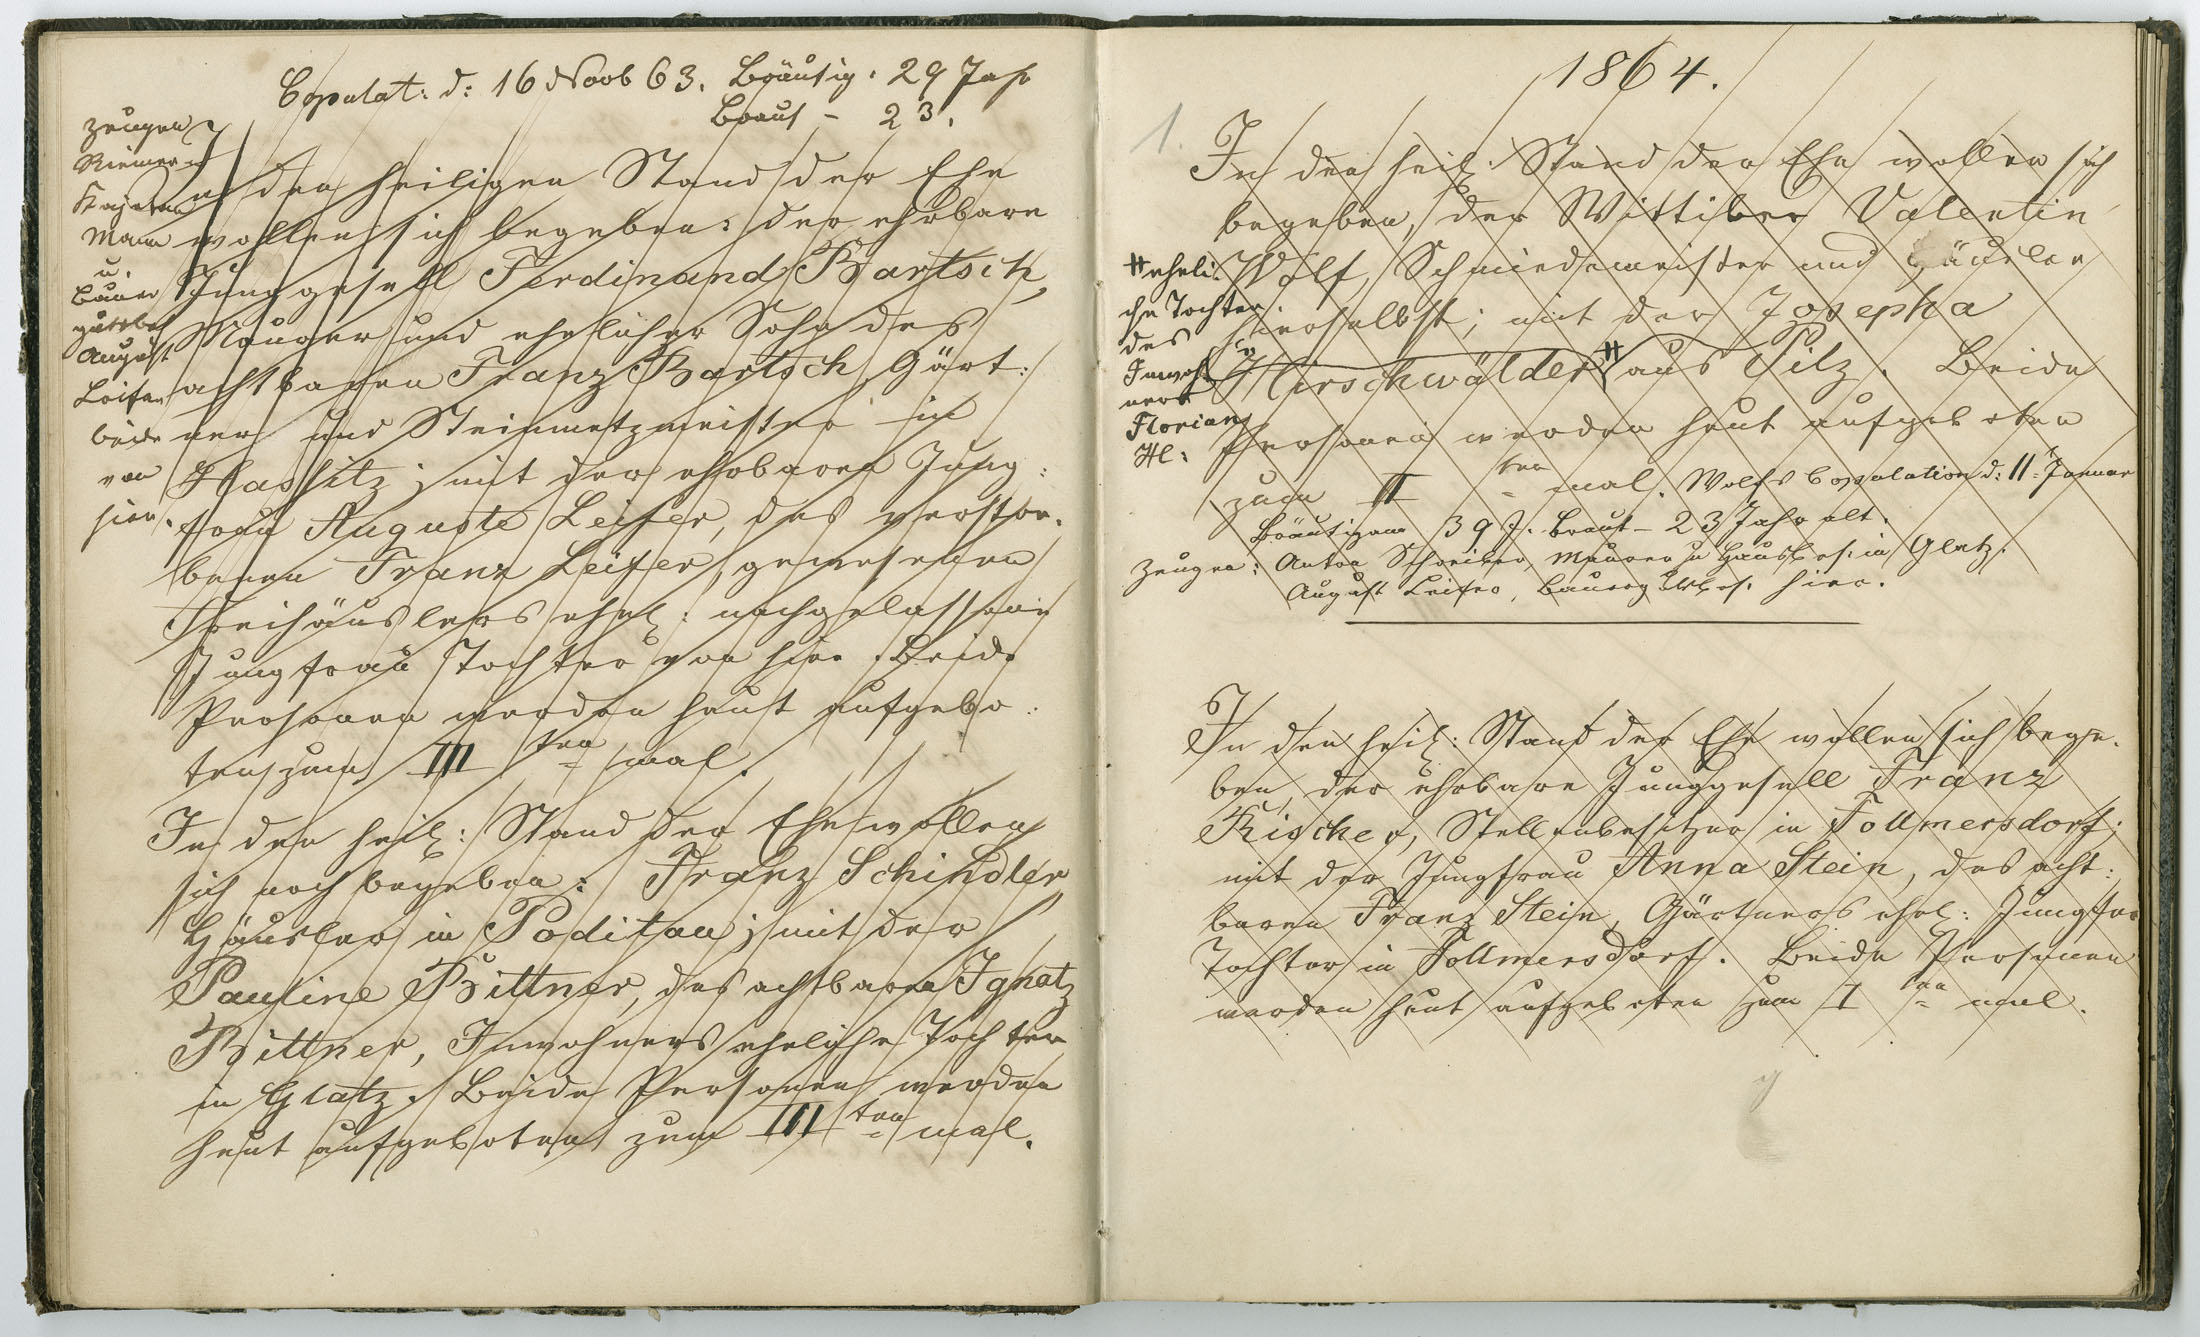 Copulat: d: 16 Novb 63. Bräutig. 29 Jahr
Braut - 23.
Zeugen
Riemer
Kajetan
Mann
u.
Bauer
gutsbes
August
Leifer
beide
von
hier.
In den heiligen Stand der Ehe
wollen sich begeben: der ehrbare
Junggesell Ferdinand Bartsch,
Maurer und ehelicher Sohn des
achtbaren Franz Bartsch, Gärt:
ner und Steinmetzmeister in
Hassitz; mit der ehrbaren Jung:
frau Auguste Leifer, des verstor.
benen Franz Leifer, gewesenen
Freihäuslers ehel: nachgelassene
Jungfrau Tochter von hier. Beide
Personen werden heut aufgebo:
ten zum III ten mal.
In den heil: Stand der Ehe wollen
sich noch begeben: Franz Schindler
Häusler in Poditau; mit der
Pauline Bittner, des achtbaren Ignatz
Bittner, Inwohners eheliche Tochter
in Glatz. Beide Personen werden
heut aufgeboten zum III ten mal.
1864.
1.
In den heil. Stand der Ehe wollen sich
begeben, der Wittiber Valentin
Wolf, Schmiedemeister und Häusler
hierselbst; mit der Josepha
Hirschwälder # aus Pilz. Beide
Personen werden heut aufgeboten
zum II ten mal. Wolfs Copulation d: 11. Januar
Bräutigam 39 J. Braut - 23 Jahr alt.
Zeugen: Anton Schreiber, Maurer u Hausbes. in Glatz.
August Leifer, Bauergutsbes. hier.
# eheli
che Tochter
des
Inwoh
ners
Florian
H:
In den heil: Stand der Ehe wollen sich bege.
ben, der ehrbare Junggesell Franz
Rischer, Stellenbesitzer in Follmersdorf;
mit der Jungfrau Anna Stein, des acht:
baren Franz Stein, Gärtners ehel: Jungfr
Tochter in Follmersdorf. Beide Personen
werden heut aufgeboten zum I ten mal.